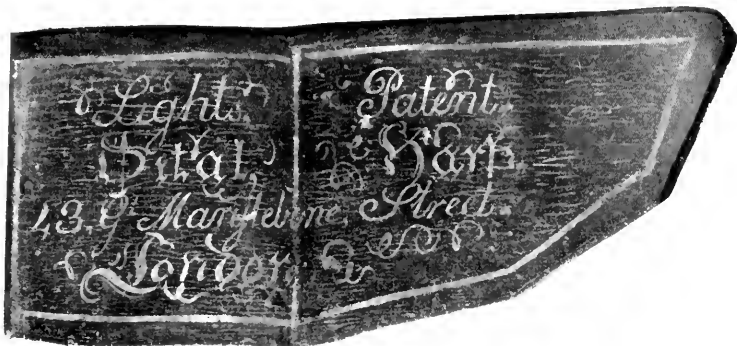 Lights Patent
Dital, Harp,
43, Gt Marylebone, Street,
London,